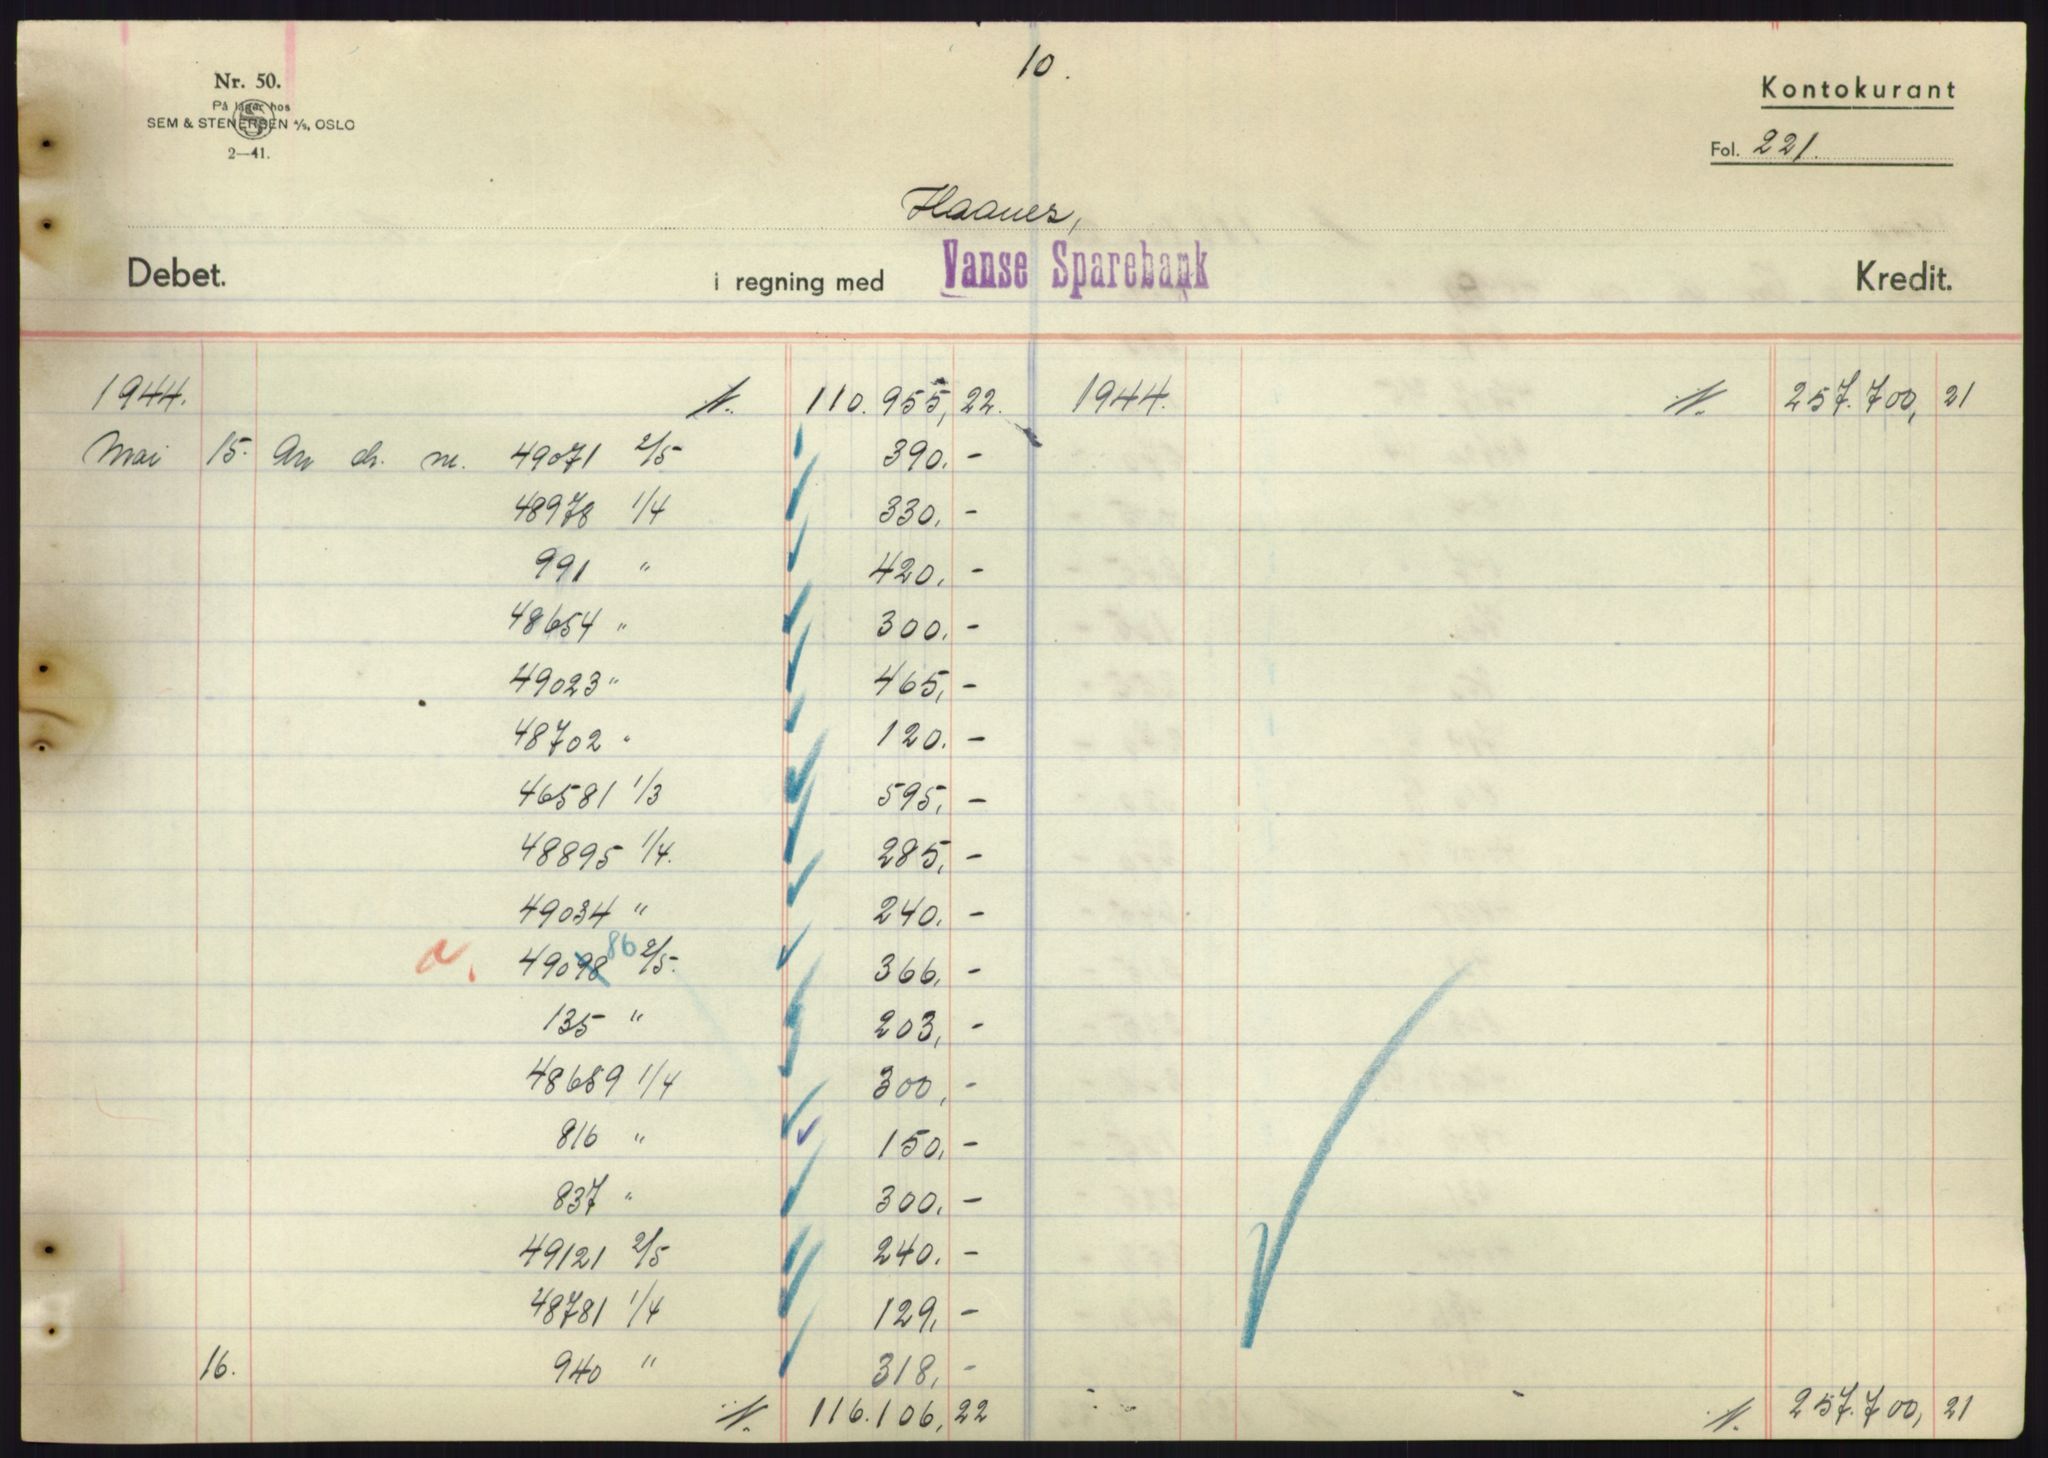 10.
Nr. 50.
På lager hos
SEM & STENERSEN A/S, OSLO
2—41.
Kontokurant
Fol. 221.
Haanes,
Debet. i regning med Vanse Sparebank Kredit.
1944. N. 110.955,22. 1944. N. 257.700,21
Mai 15. An ch. nr. 49071 2/5 390.-
48978 1/4 330.-
991 " 420.-
48654 " 300.-
49023 " 465,-
48702 " 120.-
46581 1/3 595,-
48895 1/4. 285,-
49034 " 240.-
N. 49098 86 2/5. 366,-
135 " 203,-
48689 1/4 300,-
816 " 150,-
837 " 300.-
49121 2/5 240.-
48781 1/4 129,-
16. 940 " 318,-
N. 116.106,22 N. 257.700,21